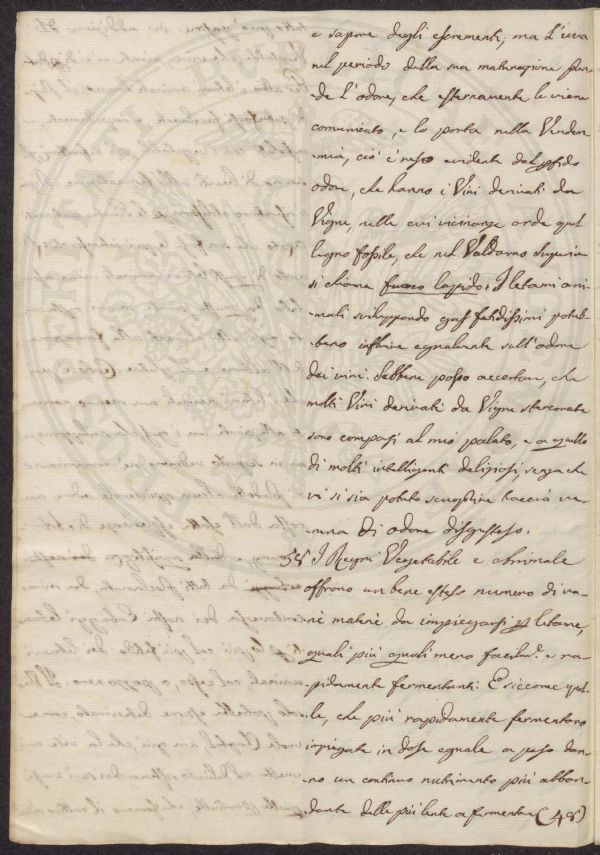 e sapore degli escrementi; ma l'uva
nel periodo della sua maturazione pren-
de l'odore, che esternamente le viene
comunicato, e lo porta nella Vendem-
mia, ciò è reso evidente dal
odore, che hanno i Vini derivati da
Vigne, nelle cui vicinanze arde quel
legno fossile, che nel Valdarno Superiore
si chiama fuoco lapido. I letami ani-
mali sviluppando gas fetidissimi potreb-
bero influire egualmente sull'odore
dei vini. Sebbene posso accertare, che
molti Vini derivati da Vigne stercorate
sono comparsi al mio palato, e a quello
di molti intelligenti deliziosi, senza che
vi si sia potuto scuoprire traccia ve-
runa di odore disgustoso.
58 I Regni Vegetabile e Animale
offrono un bene esteso numero di va-
rie materie da impiegarsi per letame,
quali più quali meno facilmte e ra-
pidamente fermentanti. E siccome quel-
le, che più rapidamente fermentano
impiegate in dose eguale a peso dan-
no un continuo nutrimento più abbon-
dante delle più lente a fermentare (48)